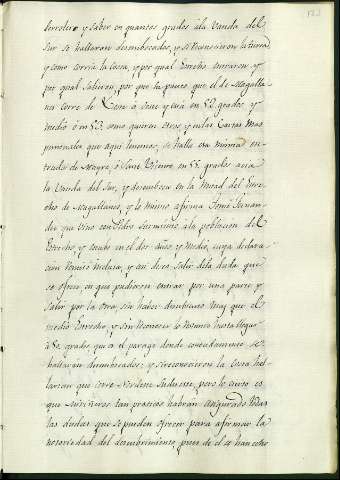 derrotero y saber en quantos grados á la vanda del
Sur se hallaron desembocados, y si reconocieron la tierra
y como corria la Costa, y por qual Estrecho entraron y
por qual salieron, por que ya parece que el de Magalla-
nes corre de y está en 52 grados y
medio ó en 53, como quieren otros, y en las Cartas mas
puntuales que aqui tenemos, se halla esa misma en-
trada de Mayre, ó San Vicente en 55 grados acia
la vanda del Sur, y desemboca en la mitad del Estre-
cho de Magallanes, y lo mismo afirma Tomé Hernan-
dez que vino con Pedro Sarmiento á la poblacion del
Estrecho y estubo en el dos años, y medio, cuya declara-
cion y an deva salir de la duda que
se ofrece en que pudieron entrar por una parte y
salir por la otra, sin haber descubierto mas que el
medio Estrecho, y sin reconocer lo mismo hasta llegar
á 60 grados, que es el parage donde concuidamente se
hallaron desembocados; y si reconocieron la Costa ha-
llarian que corre Nordeste Sudueste, pero lo cierto es
que marineros tan practicos habran asegurado todas
las dudas que se pueden ofrecer para afirmar la
notoriedad del descubrimiento, pues de el se han echo